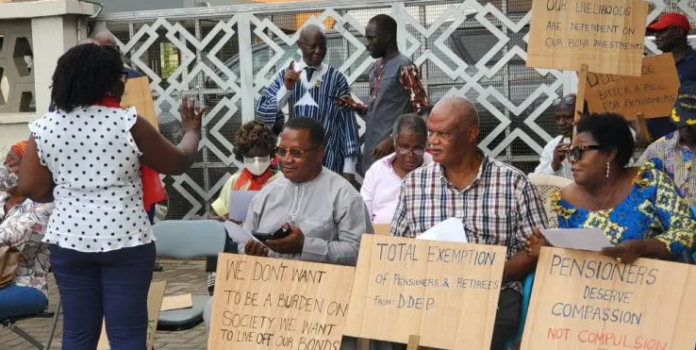 OUR LIVELIHOODS
ARE DEPENDENT ON
OUR BOND INVESTMENTS
TOO
BITTER A PILL
FOR PENSIONERS
WE DON'T WANT
TO BE A BURDEN ON
SOCIETY. WE WANT
TO LIVE OFF OUR BONDS
TOTAL EXEMPTION
OF PENSIONERS & RETIREES
FROM DDEP
PENSIONERS
DESERVE
COMPASSION
NOT COMPULSION